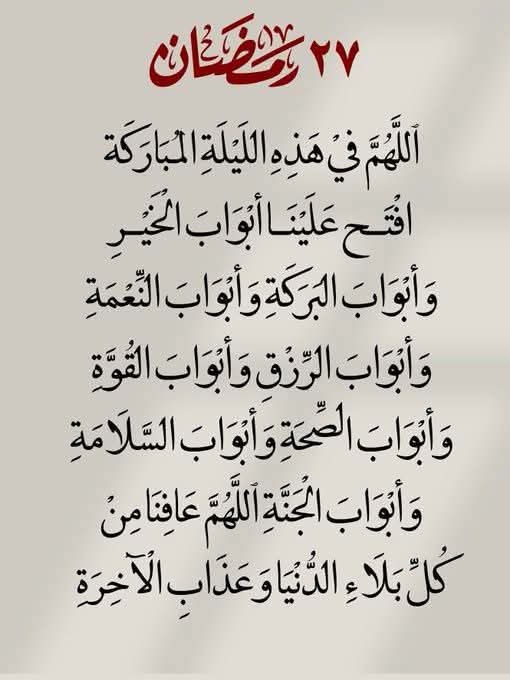 ٢٧ رمضان
ٱللَّهُمَّ فِيْ هَذِهِ اللَيْلَةِ المُبَارَكَة
افْتَــح عَلَيْنَــا أبْوَابَ الْخَيْــرِ
وَأبْوَابَ البَرَكَةِ وَأبْوَابَ النِّعْمَةِ
وَأبْوَابَ الرِّزْقِ وَأبْوَابَ القُوَّةِ
وَأبْوَابَ الصِّحَةِ وَأبْوَابَ السَّلَامَةِ
وَأبْوَابَ الْجَنَّةِ ٱللَّهُمَّ عَافِنَا مِنْ
كُلِّ بَلَاءِ الدُّنْيَا وَعَذَابِ الْآخِرَةِ